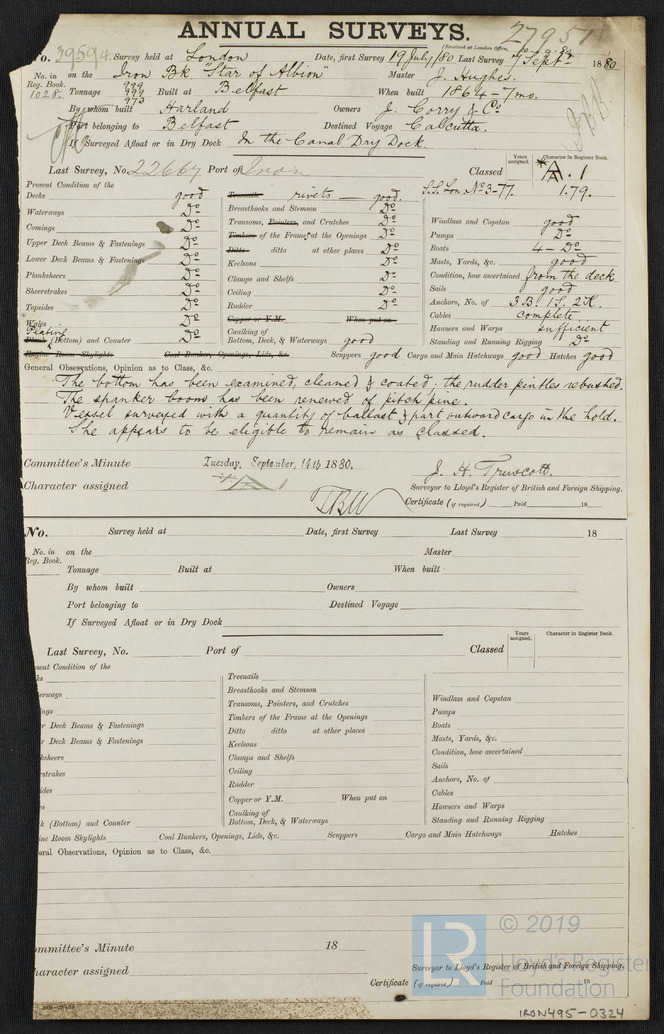 ANNUAL SURVEYS.
27951
(Received at London Office,
No. 39594. Survey held at London Date, first Survey 19 July/80 Last Survey 7 Septr 1880
No. in Reg. Book. 1028. on the Iron Bk "Star of Albion" Master J. Hughes.
Tonnage 999 999 973 Built at Belfast When built 1864-7mo.
By whom built Harland Owners J. Corry & Co
Port belonging to Belfast Destined Voyage Calcutta.
If Surveyed Afloat or in Dry Dock In the Canal Dry Dock.
Years assigned. Character in Register Book.
Last Survey, No. 22667 Port of Iron Classed *A.1
S.S. Lon. No 3-77. 1.79.
Present Condition of the
Decks good
Waterways Do
Comings Do
Upper Deck Beams & Fastenings Do
Lower Deck Beams & Fastenings Do
Planksheers Do
Sheerstrakes Do
Topsides Do
Wales Do
Plating
Plank (Bottom) and Counter Do
Treenails rivets good.
Breasthooks and Stemson Do
Transoms, Pointers, and Crutches Do
Timbers of the Frame at the Openings Do
Ditto ditto at other places Do
Keelsons Do
Clamps and Shelfs Do
Ceiling Do
Rudder Do
Copper or Y.M. When put on
Caulking of
Bottom, Deck, & Waterways good
Windlass and Capstan good
Pumps Do
Boats 4 - Do
Masts, Yards, &c. good
Condition, how ascertained from the deck
Sails good
Anchors, No. of 3B. 1S. 2K.
Cables complete
Hawsers and Warps sufficient
Standing and Running Rigging Do
Engine Room Skylights Coal Bunkers, Openings, Lids, &c. Scuppers good Cargo and Main Hatchways good Hatches good
General Observations, Opinion as to Class, &c.
The bottom has been examined, cleaned & coated; the rudder pintles rebushed.
The spanker boom has been renewed of pitch pine.
Vessel surveyed with a quantity of ballast & part outward cargo in the hold.
She appears to be eligible to remain as classed.
Committee's Minute Tuesday, September, 14th 1880.
J. H. Truscott.
Character assigned A1
Surveyor to Lloyd's Register of British and Foreign Shipping.
Certificate (if required) Paid 18
No. Survey held at Date, first Survey Last Survey 18
No. in Reg. Book. on the Master
Tonnage Built at When built
By whom built Owners
Port belonging to Destined Voyage
If Surveyed Afloat or in Dry Dock
Years assigned. Character in Register Book.
Last Survey, No. Port of Classed
sent Condition of the
ks
erways
ngs
r Deck Beams & Fastenings
r Deck Beams & Fastenings
ksheers
rstrakes
ides
k (Bottom) and Counter
Treenails
Breasthooks and Stemson
Transoms, Pointers, and Crutches
Timbers of the Frame at the Openings
Ditto ditto at other places
Keelsons
Clamps and Shelfs
Ceiling
Rudder
Copper or Y.M. When put on
Caulking of
Bottom, Deck, & Waterways
Windlass and Capstan
Pumps
Boats
Masts, Yards, &c.
Condition, how ascertained
Sails
Anchors, No. of
Cables
Hawsers and Warps
Standing and Running Rigging
ine Room Skylights Coal Bunkers, Openings, Lids, &c. Scuppers Cargo and Main Hatchways Hatches
eral Observations, Opinion as to Class, &c.
ommittee's Minute 18
haracter assigned
Surveyor to Lloyd's Register of British and Foreign Shipping.
Certificate (if required) Paid 18
LR © 2019
Lloyd's Register
Foundation
IRON495-0324